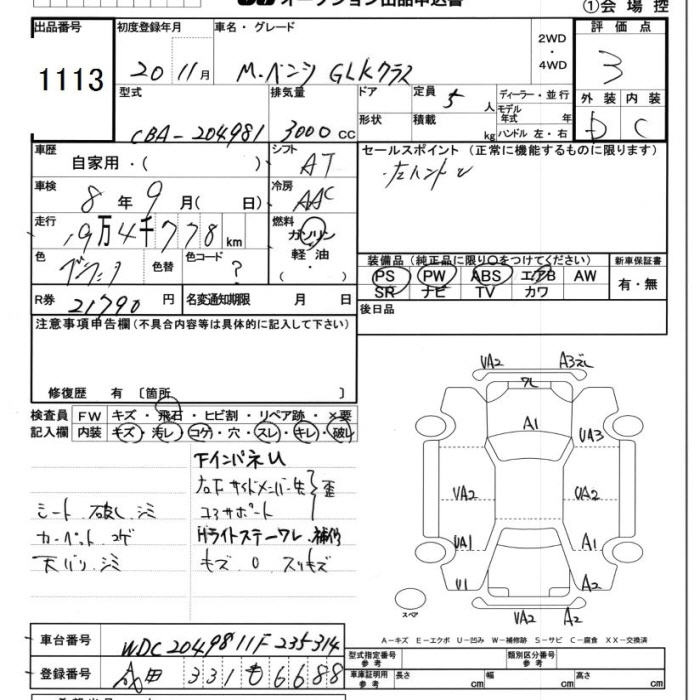 オークション出品申込書
①会場控
出品番号
1113
初度登録年月
20 11月
車名・グレード
M.ベンツ GLKクラス
2WD
・
4WD
評価点
3
外装 内装
D C
型式
CBA-204981
排気量
3000 cc
ドア
形状
定員
5 人
積載
kg
ディーラー・並行
モデル年式 年
ハンドル 左・右
車歴
自家用・( )
シフト
AT
セールスポイント (正常に機能するものに限ります)
左ハンドル
車検
8年 9月( 日)
冷房
AAC
走行
19万4千778km
燃料
ガソリン
軽油
・( ・ )
色
色替
色コード
?
装備品 (純正品に限り○をつけてください)
PS PW ABS エアB AW
SR ナビ TV カワ
新車保証書
有・無
R券
21790 円
名変通知期限 月 日
後日品
注意事項申告欄 (不具合内容等は具体的に記入して下さい)
修復歴 有 〔箇所 〕
検査員記入欄
FW キズ・飛石・ヒビ割・リペア跡・×要
内装 キズ・汚レ・コゲ・穴・スレ・キレ・破レ
シート 破レ シミ
カーペット コゲ
天バリ シミ
下インパネU
右下サイドメンバー先
コアサポート
歪
Hライトステーワレ・補修
キズ 0 スリキズ
UA2 A3ズレ
ワレ
A1
UA3
UA2 UA2
UA1 A1
U1 A2
UA2 A2
スペア
A-キズ E-エクボ U-凹み W-補修跡 S-サビ C-腐食 XX-交換済
車台番号
WDC2049811F235314
登録番号
331 も 6688
型式指定番号 参考
類別区分番号 参考
車庫証明用 参考
長さ cm 幅 cm 高さ cm